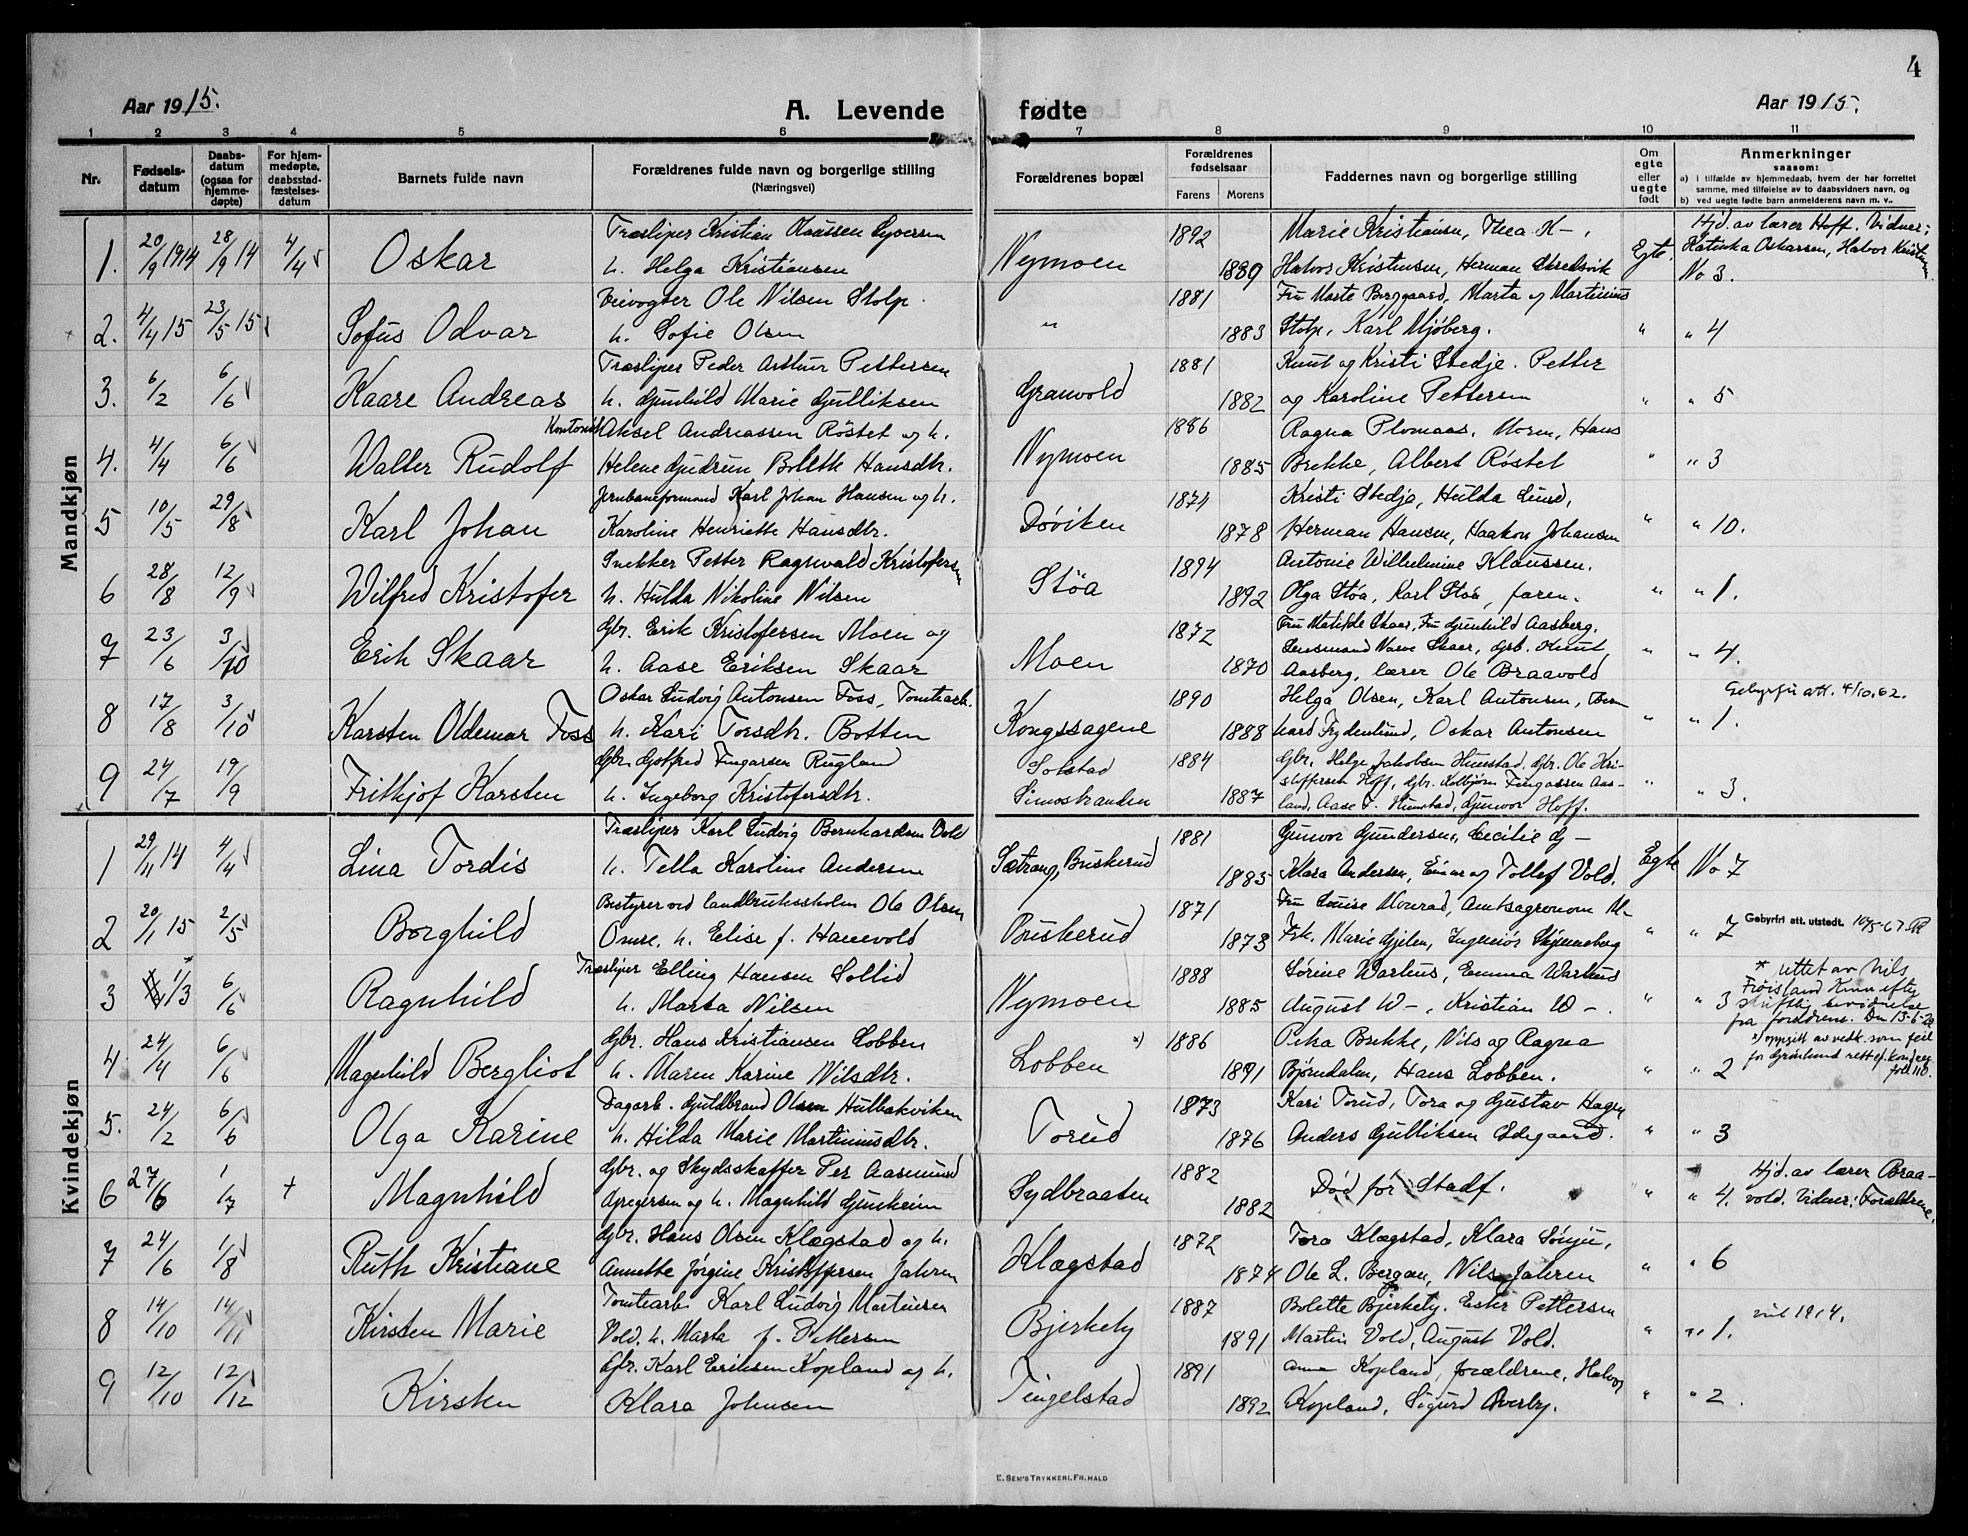 4
Aar 1915.
A. Levende fødte
Aar 1915.
1 2 3 4 5 6 7 8 9 10 11
Nr.
Fødsels-
datum
Daabs-
datum
(ogsaa for
hjemme-
døpte)
For hjem-
medøpte,
daabsstad-
fæstelses-
datum
Barnets fulde navn
Forældrenes fulde navn og borgerlige stilling
(Næringsvei)
Forældrenes bopæl
Forældrenes
fødselsaar
Farens Morens
Faddernes navn og borgerlige stilling
Om
egte
eller
uegte
født
Anmerkninger
saasom:
a) i tilfælde av hjemmedaab, hvem der har forrettet
samme, med tilføielse av to daabsvidners navn, og
b) ved uegte fødte barn anmelderens navn m. v..
Mandkjøn
1. 20/9 1914 28/9 14 4/4 5 Oskar
Træsliper Kristian
h. Helga Kristiansen
Nymoen 1892 1889
Marie Kristiansen, Thea K-,
Halvor Kristensen, Herman Skredsvik
Egte.
Hjd. av lærer Hoff. Vidner:
Katinka Oskarsen, Halvor Kristensen.
No 3.
2. 4/4 15 23/5 15 Sofus Odvar
Veivogter Ole Nilsen Stolp.
h. Sofie Olsen
" 1881 1883
Fru Marte Berggaard, Marta og Martinius
Stolp, Karl Mjøberg.
" " 4
3. 6/2 6/6 Kaare Andreas
Træsliper Peder Arthur Pettersen
h. Gunhild Marie Gulliksen
Granvold 1881 1882
Knut og Kristi Stedje. Petter
og Karoline Pettersen
" " 5
4. 4/4 6/6 Walter Rudolf
Kontorist Aksel Andreassen Røstet og h.
Helene Gudrun Bolette Hansdtr.
Nymoen 1886 1885
Ragna Plomaas. Moren, Hans
Brekke, Albert Røstet
" " 3
5 10/5 29/8 Karl Johan
Jernbaneformand Karl Johan Hansen og h.
Karoline Henriette Hansdtr.
Døviken 1874 1878
Kristi Stedje, Hulda Lund,
Herman Hansen, Haakon Johansen
" " 10.
6 28/8 12/9 Wilfred Kristofer
Snekker Petter Ragnvald Kristofersen
h. Hulda Nikoline Nilsen
Støa 1894 1892
Antonie Wilhelmine Klaussen.
Olga Støa, Karl Støa, faren.
" " 1.
7 23/6 3/10 Erik Skaar
Gbr. Erik Kristofersen Moen og
h. Aase Eriksen Skaar
Moen 1872 1870
Fru Matilde Skaar, Fru Gunhild Aasberg.
Lensmand Narve Skaar, Grb. Knut
Aasberg, lærer Ole Braavold
" " 4.
8 17/8 3/10 Karsten Oldemar Foss
Oskar Ludvig Antonsen Foss, Tomtearb.
h. Kari Torsdtr. Botten
Kongssagene 1890 1888
Helga Olsen, Karl Antonsen, Bern
hard Frydenlund, Oskar Antonsen
Gebyrfri att. 4/10.62.
" " 1.
9 24/7 19/9 Frithjof Karsten
Gbr. Gotfred Fingarsen Rugland
h. Ingeborg Kristofersdtr.
Solstad
Simostranden 1884 1887
Gbr. Helge Jakobsen Hunstad, Gbr. Ole Kri-
stoffersen Hoff, Gbr. Kolbjørn Fingarsen Aas-
land, Aase T. Hunstad, Gunvor Hoff.
" " 3.
Kvindekjøn
1 29/11 14 4/4 Lina Tordis
Træsliper Karl Ludvig Bernhardsen Vold
h. Tella Karoline Andersen
Sætrang, Buskerud 1881 1885
Gunvor Gundersen, Cecilie G-
Klara Andersen, Einar og Tollef Vold.
Egte No 7
2 20/1 15 2/5 Borghild
Bestyrer ved landbruksskolen Ole Olsen
Omre, h. Elise f. Hanevold
Buskerud 1871 1873
Fru Louise Monrad, Amtsagronom M-
Frk. Marie Gjelen, Ingeniør Skjenneberg
" " 7 Gebyrfri att. utstedt. 10/5-67
3 1/3 * 6/6 Ragnhild
Træsliper Elling Hansen Sollid
h. Marta Nilsen
Nymoen 1888 1885
Sørine Warhus, Emma Warhus
August W-, Kristian W-.
" " 3
* rettet av Nils
Frøisland Kinn efter
skriftlig bevidnelse
fra foreldrene. Den 15-6-20
4. 24/4 6/6 Magnhild Bergliot
Gbr. Hans Kristiansen Lobben
h. Maren Karine Nilsdtr.
Lobben x) 1886 1891
Petra Brekke, Nils og Ragna
Bjørndalen, Hans Lobben.
" " 2
x) oppgitt av vedk. som feil
5. 24/2 6/6 Olga Karine
Dagarb. Guldbrand Olsen Hulbakviken
h. Hilda Marie Martiniusdtr.
Torud 1873 1876
Kari Torud, Tora og Gustav Hagen
Anders Gulliksen Ødegaard.
" " 3
6 27/6 1/7 + Magnhild
Gbr. og Skydsskaffer Per Aasmund
og h. Magnhild Gunheim
Sydbraaten 1882 1882
Død før Stadf.
" " 4.
Hjd. av lærer Braa-
vold. Vidner: Forældrene.
7 24/6 1/8 Ruth Kristiane
Gbr. Hans Olsen Klægstad og h.
Annette Jørgine Kristoffersen Jahren
Klægstad 1872 1874
Tora Klægstad, Klara Sønju,
Ole L. Bergan, Nils Jahren
" " 6
8 14/10 14/11 Kirsten Marie
Tomtearb. Karl Ludvig Martinsen
Vold, h. Marta f. Pettersen
Bjerkely 1887 1891
Bolette Bjerkely. Ester Pettersen
Martin Vold, August Vold.
" " 1. viel 1914.
9 12/10 12/12 Kirsten
Gbr. Karl Eriksen Kopland og h.
Klara Johnsen
Tingelstad 1891 1892
Anna Kopland, forældrene, Halvor
Kopland, Sigurd Overby.
" " 2.
E. SEM'S TRYKKERI, FR. HALD